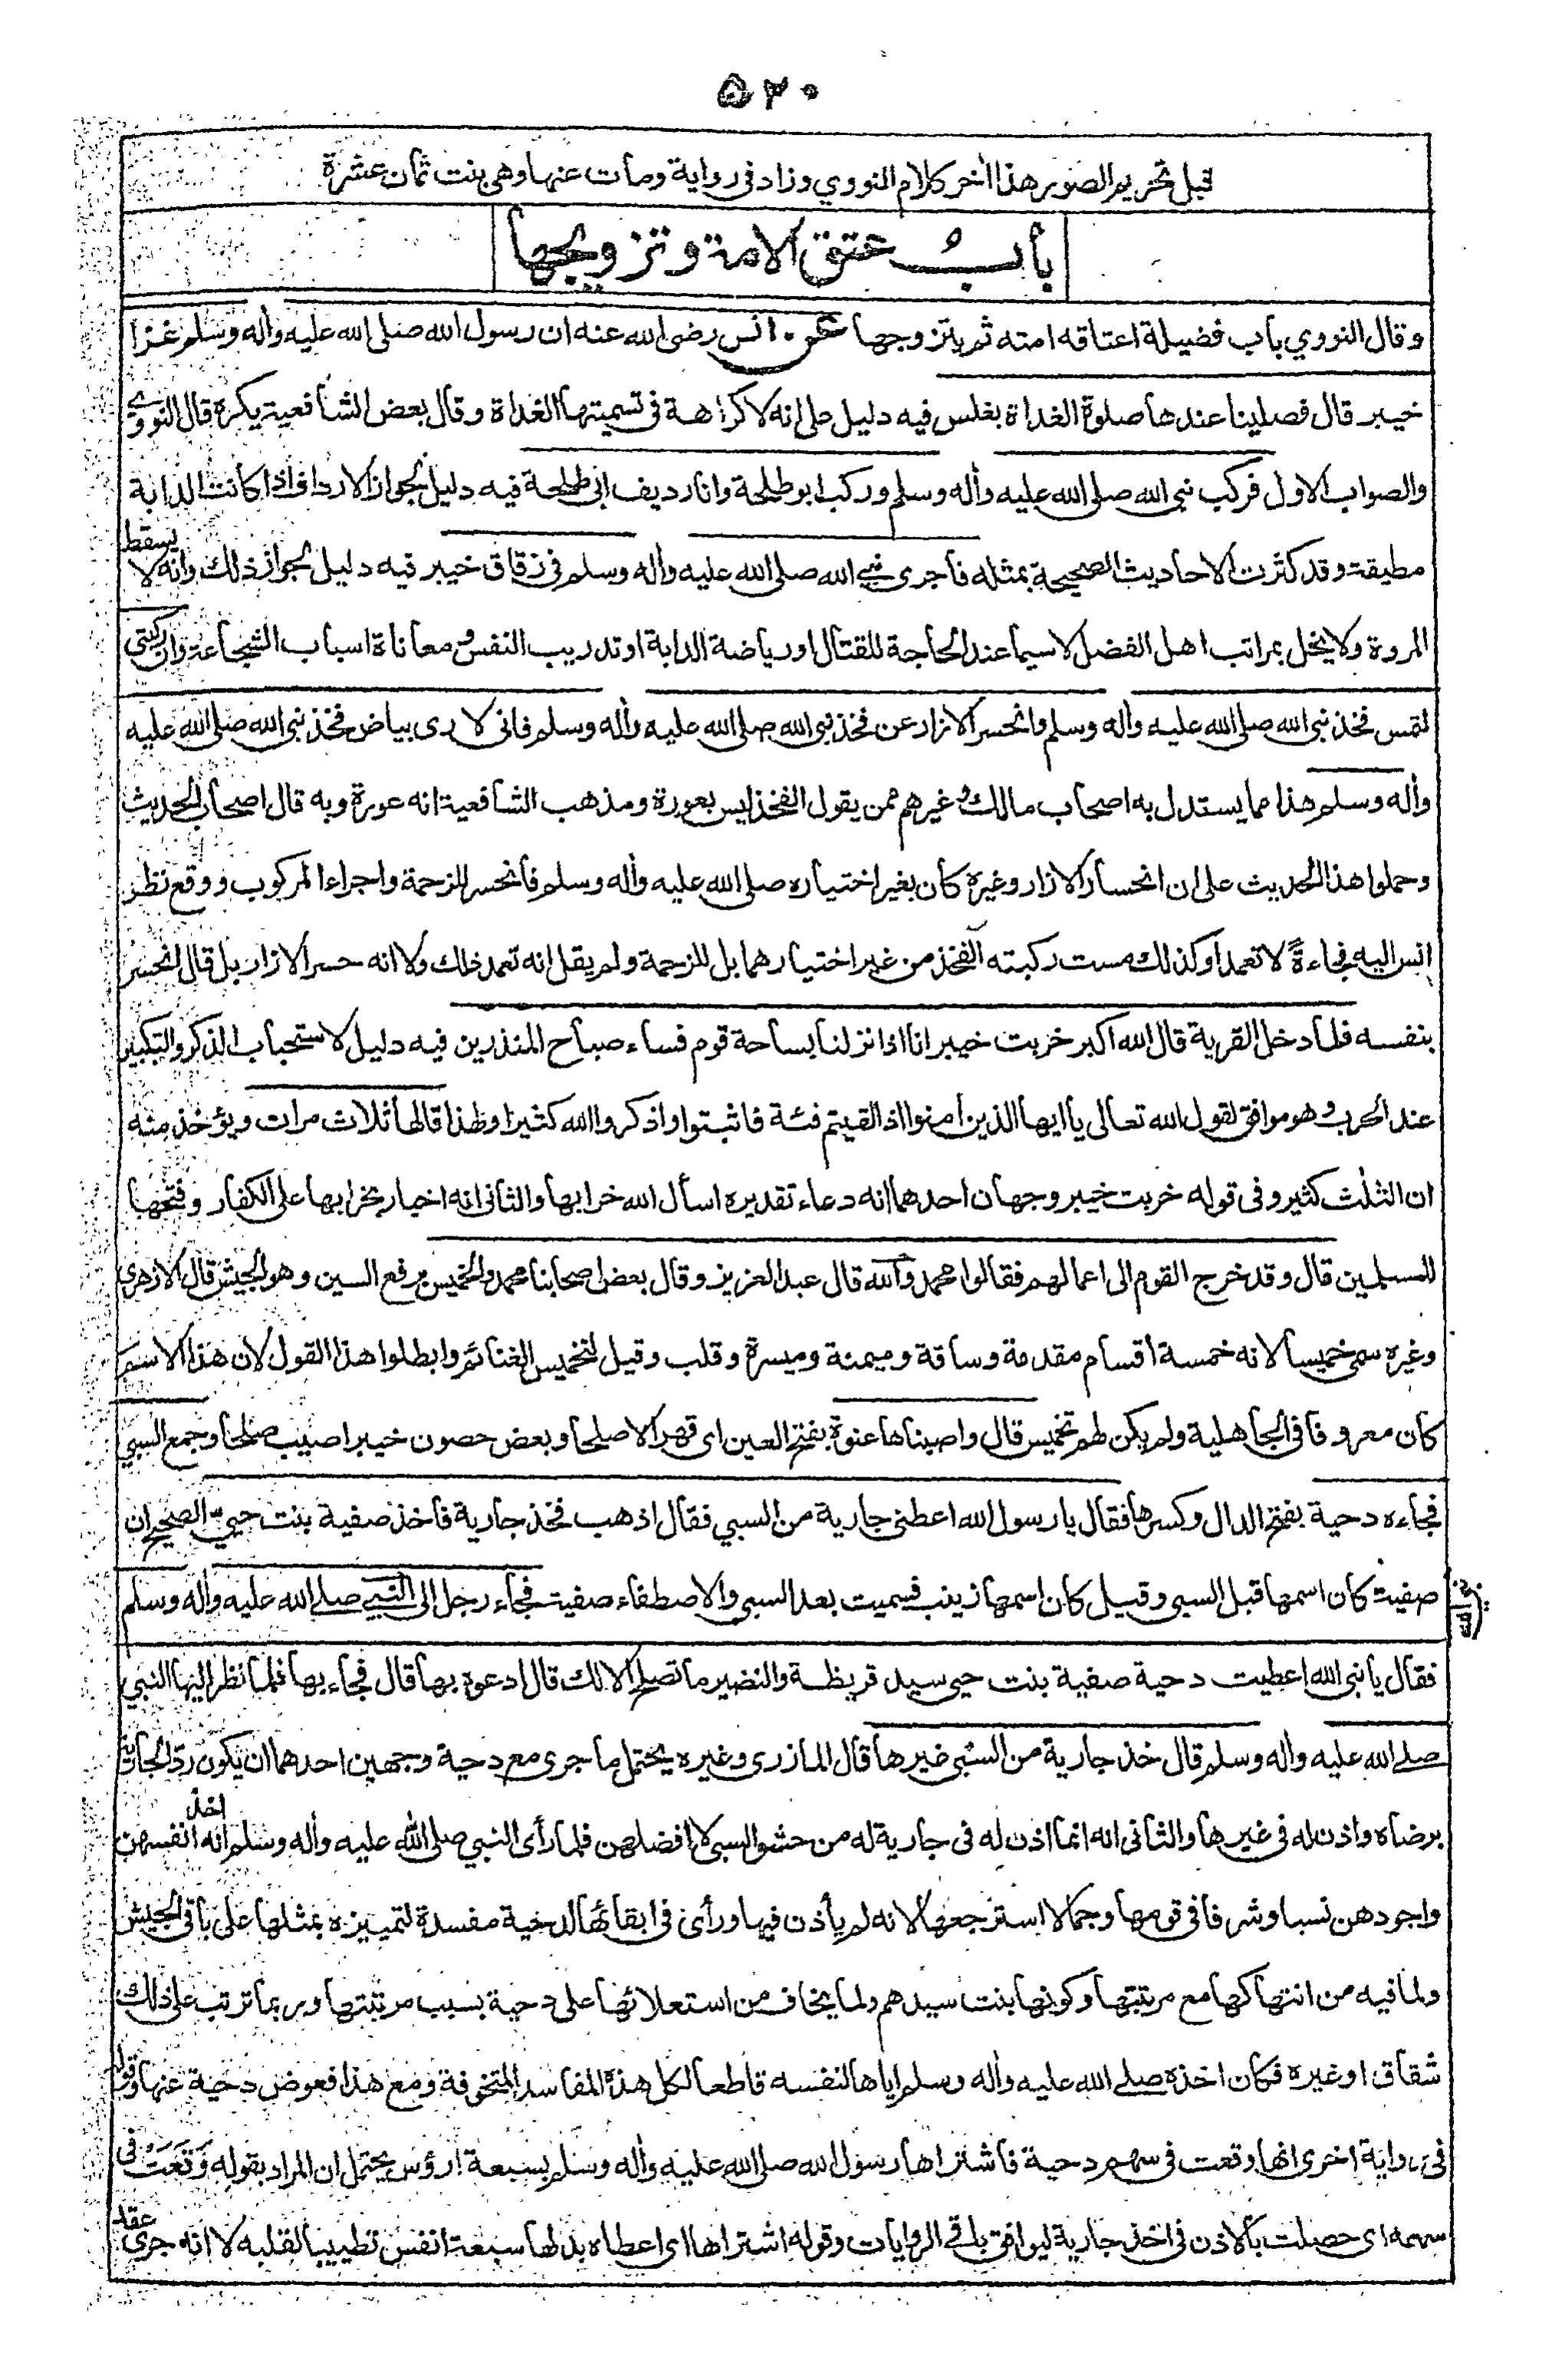 ۵۲۰
قبل تحريم الصور هذا أخر كلام النووي وزاد فى رواية ومات عنها وهى بنت ثمان عشرة
بابُ عتق الامة وتزويجها
وقال النووي باب فضيلة اعتاقه امته ثم يتزوجها عن انس رضى الله عنه ان رسول الله صلى الله عليه وأله وسلم غزا
خيبر قال فصلينا عندها صلوة الغداة بغلس فيه دليل على انه لا كراهة فى تسميتها الغداة وقال بعض الشافعية يكره قال النووي
والصواب الاول فركب نبى الله صلى الله عليه وأله وسلم وركب ابو طلحة وانا رديف ابى طلحة فيه دليل لجواز الارداف اذا كانت الدابة
مطيقة وقد كثرت الاحاديث الصحيحة بمثله فأجرى نبي الله صلى الله عليه وأله وسلم فى زقاق خيبر فيه دليل لجواز ذلك وانه لا يسقط
المروة ولا يخل بمراتب اهل الفضل لاسيما عند الحاجة للقتال او رياضة الدابة او تدريب النفس ومعاناة اسباب الشجاعة وان ركبتى
لتمس فخذ نبى الله صلى الله عليه وأله وسلم وانحسر الازار عن فخذ نبى الله صلى الله عليه وأله وسلم فانى لارى بياض فخذ نبى الله صلى الله عليه
وأله وسلم هذا مما يستدل به اصحاب مالك وغيرهم ممن يقول الفخذ ليس بعورة ومذهب الشافعية انه عورة وبه قال اصحاب الحديث
وحملوا هذا الحديث على ان انحسار الازار وغيره كان بغير اختياره صلى الله عليه وأله وسلم فانحسر للزحمة واجراء المركوب ووقع نظر
انس اليه فجاءةً لا تعمدا وكذلك مست ركبته الفخذ من غير اختيارهما بل للزحمة ولم يقل انه تعمد ذلك ولا انه حسر الازار بل قال انحسر
بنفسه فلما دخل القرية قال الله اكبر خربت خيبر انا اذا نزلنا بساحة قوم فساء صباح المنذرين فيه دليل لاستحباب الذكر والتكبير
عند الحرب وهو موافق لقول الله تعالى يا ايها الذين أمنوا اذا لقيتم فئة فاثبتوا واذكروا الله كثيرا ولهذا قالها ثلاث مرات ويؤخذ منه
ان الثلث كثير وفى قوله خربت خيبر وجهان احدهما انه دعاء تقديره اسأل الله خرابها والثانى انه اخبار بخرابها على الكفار وفتحها
للمسلمين قال وقد خرج القوم الى اعمالهم فقالوا محمد والله قال عبد العزيز وقال بعض اصحابنا محمد والخميس برفع السين وهو الجيش قال الازهرى
وغيره سمى خميسا لانه خمسة اقسام مقدمة وساقة وميمنة وميسرة وقلب وقيل لتخميس الغنائم وابطلوا هذا القول لان هذا الاسم
كان معروفا فى الجاهلية ولم يكن لهم تخميس قال واصبناها عنوة بفتح العين اى قهرا لا صلحا وبعض حصون خيبر اصيب صلحا وجمع السبي
فجاءه دحية بفتح الدال وكسرها فقال يا رسول الله اعطنى جارية من السبي فقال اذهب فخذ جارية فأخذ صفية بنت حيي الصحيح ان
صفية كان اسمها قبل السبى وقيل كان اسمها زينب فسميت بعد السبى والاصطفاء صفية فجاء رجل الى النبي صلى الله عليه وأله وسلم
فقال يا نبى الله اعطيت دحية صفية بنت حيى سيد قريظة والنضير ما تصلح الا لك قال ادعوه بها قال فجاء بها فلما نظر اليها النبي
صلى الله عليه وأله وسلم قال خذ جارية من السبى غيرها قال المازرى وغيره يحتمل ما جرى مع دحية وجهين احدهما ان يكون رد الجارية
برضاه واذن له فى غيرها والثانى انه انما اذن له فى جارية له من حشو السبى لا افضلهن فلما رأى النبي صلى الله عليه وأله وسلم انه اخذ انفسهن
واجودهن نسبا وشرفا فى قومها وجمالا استرجعها لانه لم يأذن فيها ورأى فى ابقائها لدحية مفسدة لتمييزه بمثلها على باقى الجيش
ولما فيه من انتهاكها مع مرتبتها وكونها بنت سيدهم ولما يخاف من استعلائها على دحية بسبب مرتبتها وربما ترتب على ذلك
شقاق او غيره فكان اخذه صلى الله عليه وأله وسلم اياها لنفسه قاطعا لكل هذه المفاسد المتخوفة ومع هذا فعوض دحية عنها وقوله
فى رواية اخرى انها وقعت فى سهم دحية فاشتراها رسول الله صلى الله عليه وأله وسلم بسبعة ارؤس يحتمل ان المراد بقوله وَقَعَتْ فى
سهمه اى حصلت بالاذن فى اخذ جارية ليوافق باقى الروايات وقوله اشتراها اى اعطاه بدلها سبعة انفس تطييبا لقلبه لا انه جرى عقد